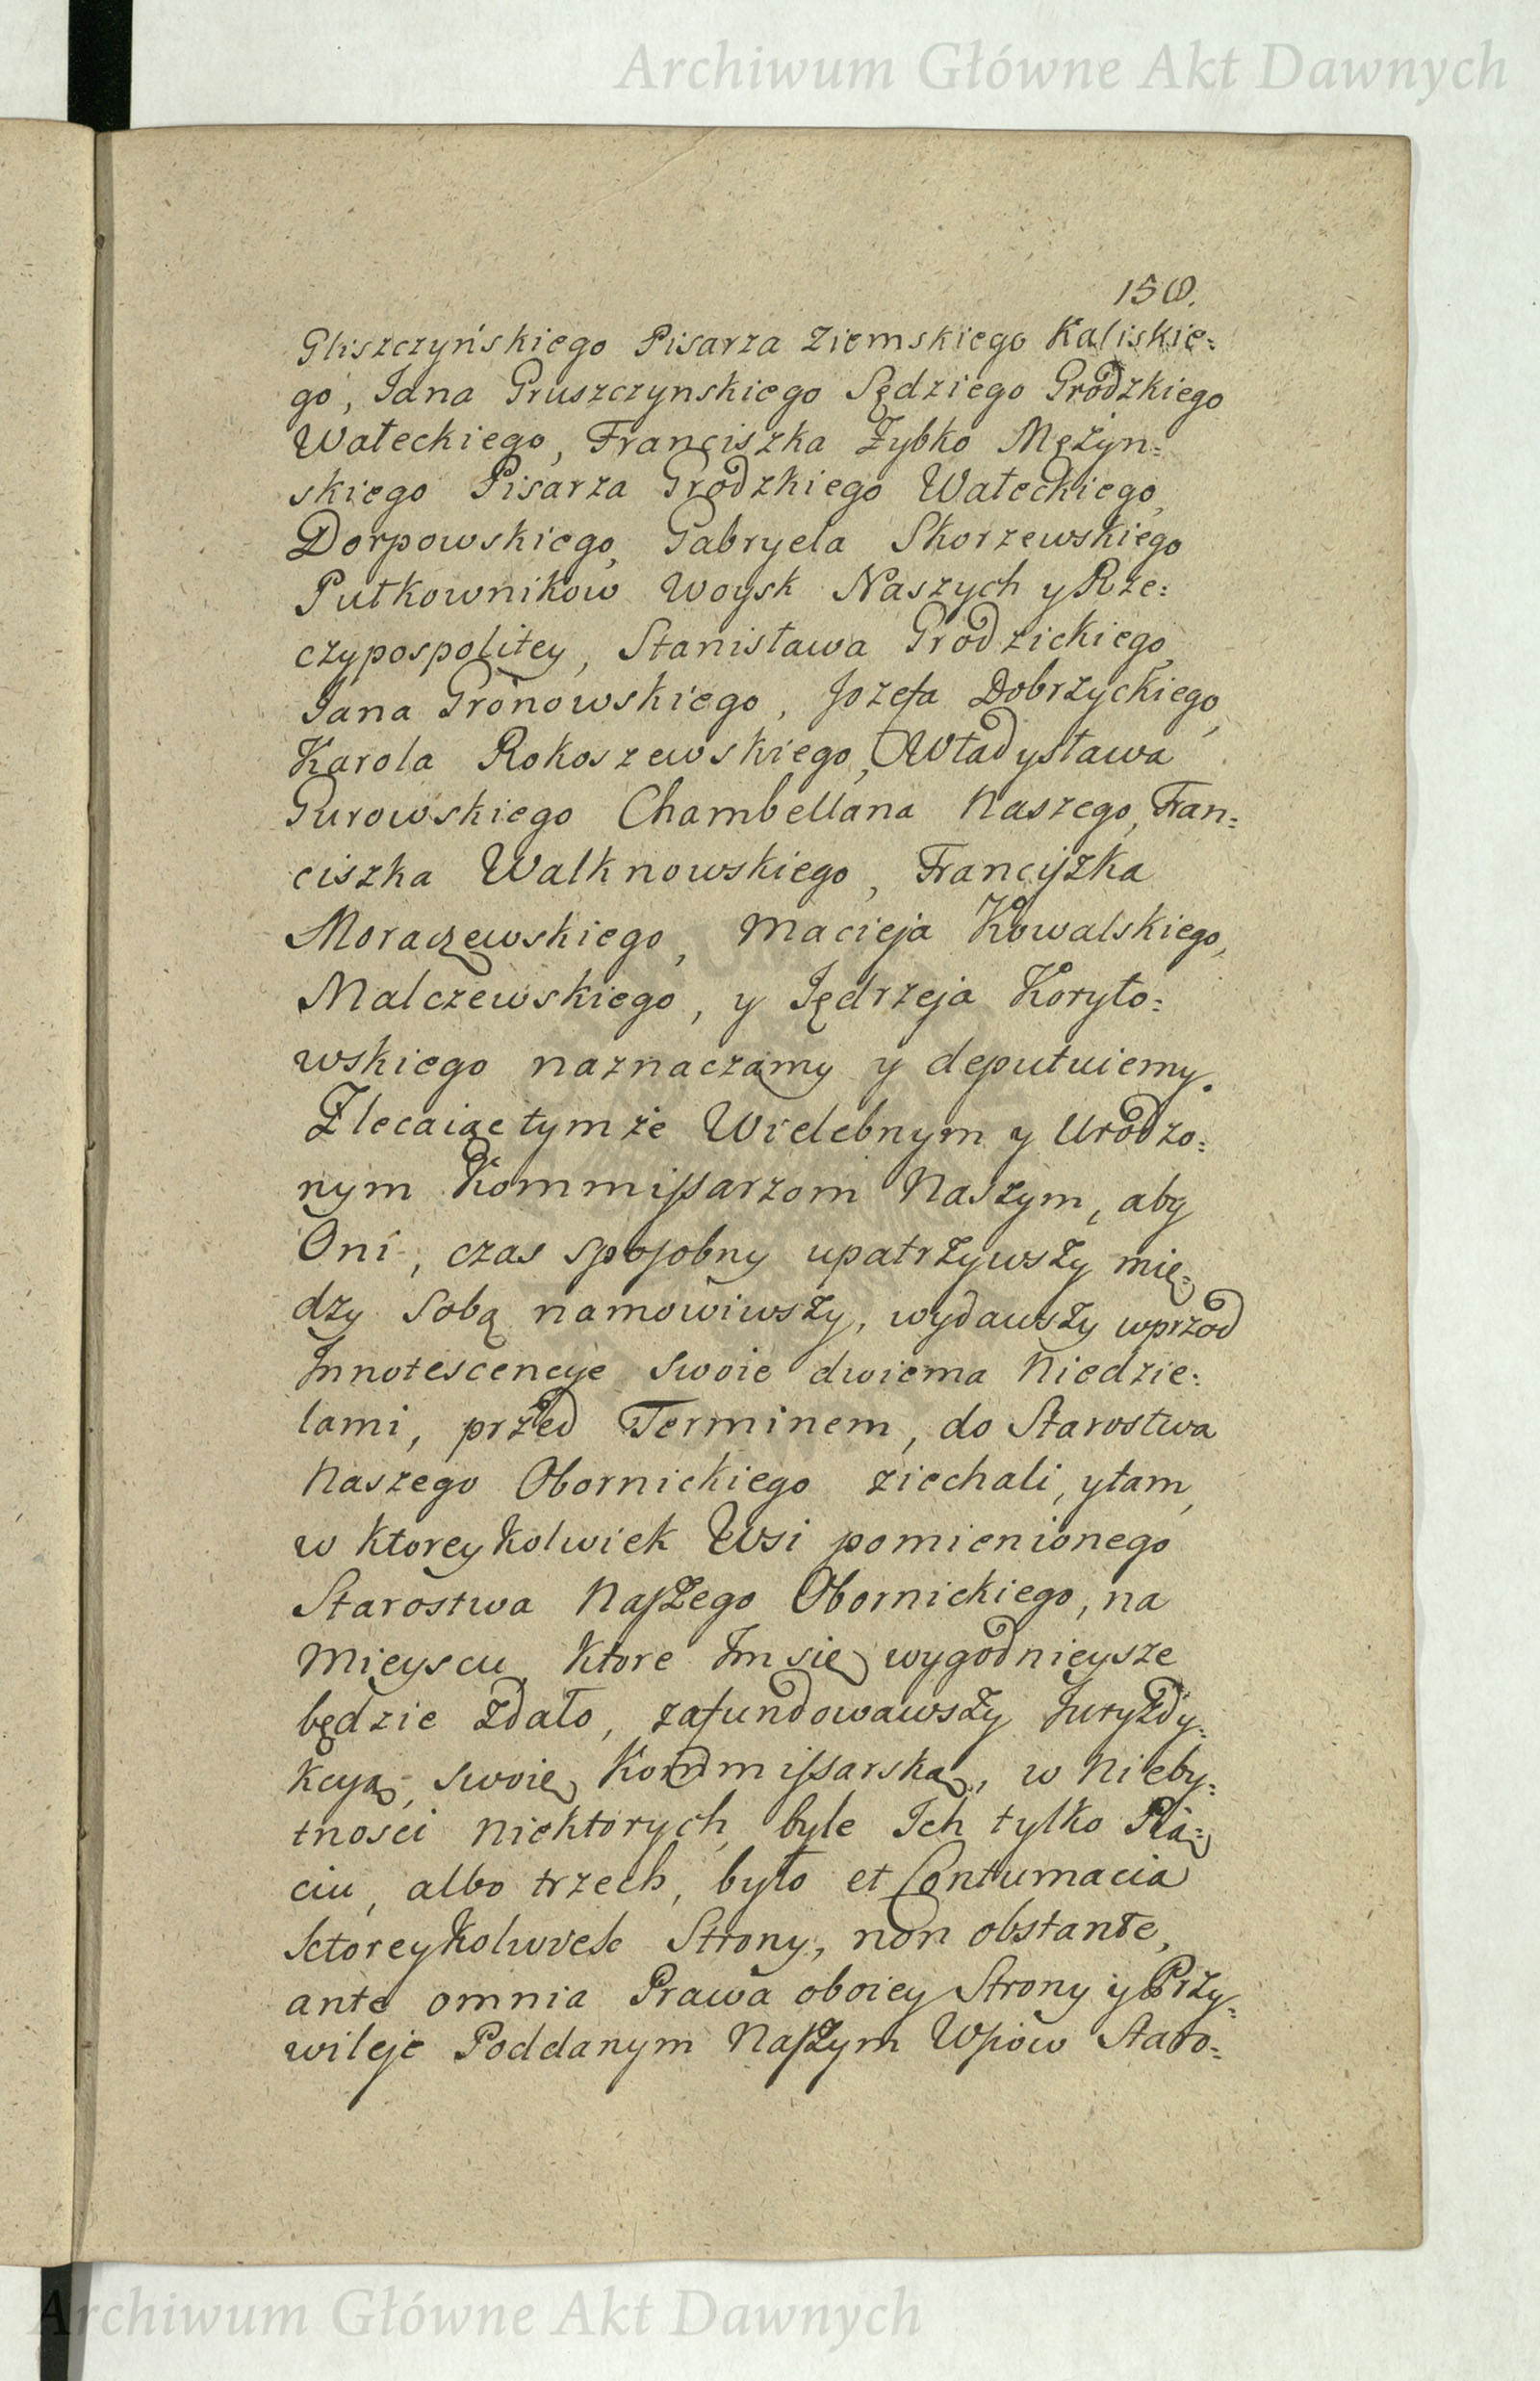 Archiwum Główne Akt Dawnych
Gliszczyńskiego Pisarza Ziemskiego Kaliskie=
go, Jana Gruszczynskiego Sędziego Grodzkiego
Wałeckiego, Franciszka Zybko Mężyn=
skiego Pisarza Grodzkiego Wałeckiego,
Dorpowskiego, Gabryela Skorzewskiego
Pułkownikow Woysk Naszych y Rze=
czypospolitey, Stanisława Grodzickiego,
Jana Gronowskiego, Jozefa Dobrzyckiego,
Karola Rokoszewskiego, Władysława
Gurowskiego Chambellana Naszego, Fran=
ciszka Walknowskiego, Franciszka
Moraczewskiego, Macieja Kowalskiego,
Malczewskiego, y Jędrzeja Koryto=
wskiego naznaczamy y deputuiemy.
Zlecaiąc tymże Wielebnym y Urodzo=
nym Kommissarzom Naszym, aby
Oni, czas sposobny upatrzywszy mię=
dzy sobą namowiwszy, wydawszy wprzod
Innotescencye swoie dwiema Niedzie=
lami, przed Terminem, do Starostwa
Naszego Obornickiego ziechali, y tam,
w ktoreykolwiek Wsi pomienionego
Starostwa Naszego Obornickiego, na
Mieyscu, ktore Im się wygodnieysze
będzie zdało, zafundowawszy Juryzdy=
kcyą, swoię Kommissarską, w Nieby=
tnosci niektorych, byle Ich tylko Pią=
ciu, albo trzech, było et Contumacia
ktoreykolwiek Strony, non obstante,
ante omnia Prawa oboiey Strony y Przy=
wileje Poddanym Naszym Wsiow Staro=
Archiwum Główne Akt Dawnych